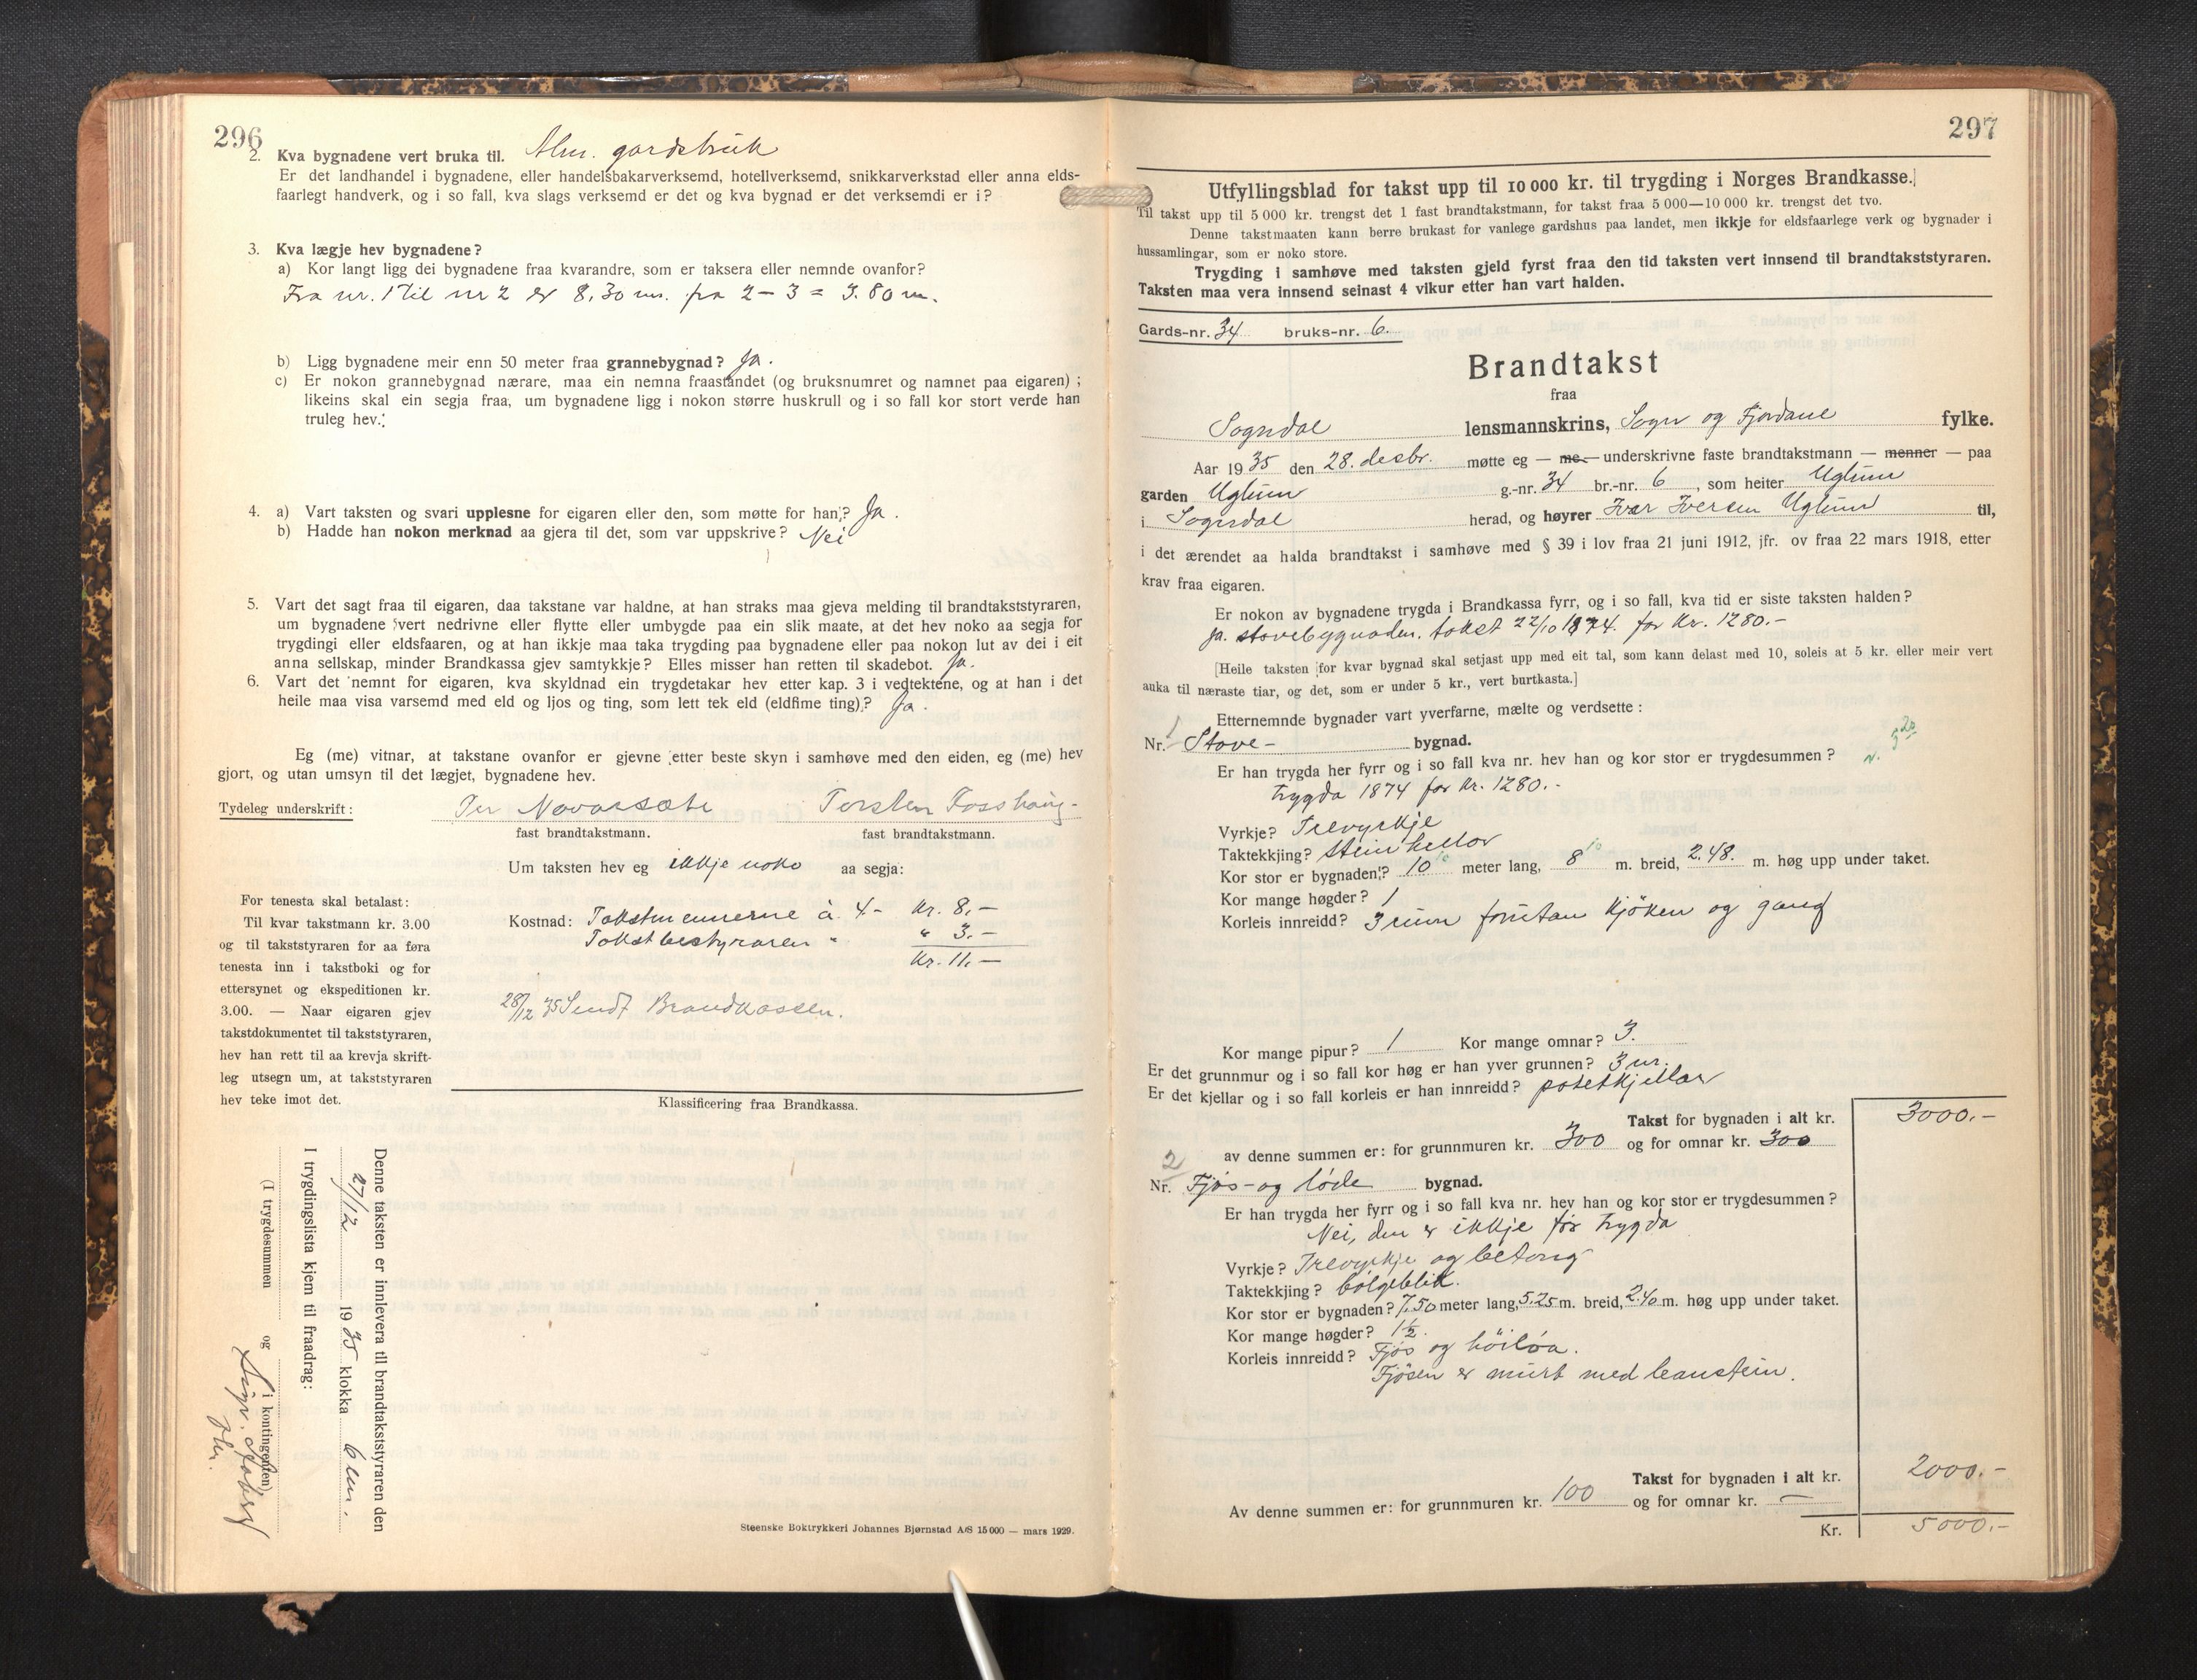 296
2. Kva bygnadene vert bruka til. Alm. gardsbruk
Er det landhandel i bygnadene, eller handelsbakarverksemd, hotellverksemd, snikkarverkstad eller anna elds-
faarlegt handverk, og i so fall, kva slags verksemd er det og kva bygnad er det verksemdi er i?
3. Kva lægje hev bygnadene?
a) Kor langt ligg dei bygnadene fraa kvarandre, som er taksera eller nemnde ovanfor?
Fra nr. 1 til nr 2 er 8,30 m. fra 2 – 3 = 3.80 m.
b) Ligg bygnadene meir enn 50 meter fraa grannebygnad? Ja.
c) Er nokon grannebygnad nærare, maa ein nemna fraastandet (og bruksnumret og namnet paa eigaren) ;
likeins skal ein segja fraa, um bygnadene ligg i nokon større huskrull og i so fall kor stort verde han
truleg hev.
4. a) Vart taksten og svari upplesne for eigaren eller den, som møtte for han? Ja.
b) Hadde han nokon merknad aa gjera til det, som var uppskrive? Nei
5. Vart det sagt fraa til eigaren, daa takstane var haldne, at han straks maa gjeva melding til brandtakststyraren,
um bygnadene vert nedrivne eller flytte eller umbygde paa ein slik maate, at det hev noko aa segja for
trygdingi eller eldsfaaren, og at han ikkje maa taka trygding paa bygnadene eller paa nokon lut av dei i eit
anna sellskap, minder Brandkassa gjev samtykkje? Elles misser han retten til skadebot. Ja.
6. Vart det nemnt for eigaren, kva skyldnad ein trygdetakar hev etter kap. 3 i vedtektene, og at han i det
heile maa visa varsemd med eld og ljos og ting, som lett tek eld (eldfime ting)? Ja.
Eg (me) vitnar, at takstane ovanfor er gjevne etter beste skyn i samhøve med den eiden, eg (me) hev
gjort, og utan umsyn til det lægjet, bygnadene hev.
Tydeleg underskrift: Per Navarsæte Torsten Fosshaug
fast brandtakstmann. fast brandtakstmann.
Um taksten hev eg ikkje noko aa segja:
For tenesta skal betalast:
Til kvar takstmann kr. 3.00
og til takststyraren for aa føra
tenesta inn i takstboki og for
ettersynet og ekspeditionen kr.
3.00. — Naar eigaren gjev
takstdokumentet til takststyraren,
hev han rett til aa krevja skrift-
leg utsegn um, at takststyraren
hev teke imot det.
Kostnad: Takstmennerne à 4- Kr. 8,-
Takstbestyraren " " 3.-
Kr. 11.-
28/12 35 Sendt Brandkassen.
Klassificering fraa Brandkassa.
Denne taksten er innlevera til brandtakststyraren den
27/12 1935 klokka 6 em.
I trygdingslista kjem til fraadrag:
(I trygdesummen og i kontingenten)
Steenske Boktrykkeri Johannes Bjørnstad A/S 15 000 — mars 1929.
297
Utfyllingsblad for takst upp til 10 000 kr. til trygding i Norges Brandkasse.
Til takst upp til 5 000 kr. trengst det 1 fast brandtakstmann, for takst fraa 5 000—10 000 kr. trengst det tvo.
Denne takstmaaten kann berre brukast for vanlege gardshus paa landet, men ikkje for eldsfaarlege verk og bygnader i
hussamlingar, som er noko store.
Trygding i samhøve med taksten gjeld fyrst fraa den tid taksten vert innsend til brandtakststyraren.
Taksten maa vera innsend seinast 4 vikur etter han vart halden.
Gards-nr. 34 bruks-nr. 6.
Brandtakst
fraa
Sogndal lensmannskrins, Sogn og Fjordane fylke.
Aar 1935 den 28. desbr. møtte eg — me — underskrivne faste brandtakstmann — menner — paa
garden Uglum g.-nr. 34 br.-nr. 6, som heiter Uglum
i Sogndal herad, og høyrer Ivar Iversen Uglum til,
i det ærendet aa halda brandtakst i samhøve med § 39 i lov fraa 21 juni 1912, jfr. ov fraa 22 mars 1918, etter
krav fraa eigaren.
Er nokon av bygnadene trygda i Brandkassa fyrr, og i so fall, kva tid er siste taksten halden?
Ja. stovebygnaden. takst 22/10 1874. for kr. 1280.-
[Heile taksten for kvar bygnad skal setjast upp med eit tal, som kann delast med 10, soleis at 5 kr. eller meir vert
auka til næraste tiar, og det, som er under 5 kr., vert burtkasta.]
Etternemnde bygnader vart yverfarne, mælte og verdsette :
Nr. 1 Stove- bygnad.
Er han trygda her fyrr og i so fall kva nr. hev han og kor stor er trygdesummen?
trygda 1874 for kr. 1280.-
Vyrkje? Trevyrkje
Taktekkjing? Steinhellor
Kor stor er bygnaden? 10 10 meter lang, 8 10 m. breid, 2.48. m. høg upp under taket.
Kor mange høgder? 1
Korleis innreidd? 3 rum forutan kjøken og gang
Kor mange pipur? 1 Kor mange omnar? 3.
Er det grunnmur og i so fall kor høg er han yver grunnen? 3 m.
Er det kjellar og i so fall korleis er han innreidd? potetkjellar
Takst for bygnaden i alt kr. 3000.-
av denne summen er: for grunnmuren kr. 300 og for omnar kr. 300
Nr. 2 Fjøs- og løde bygnad.
Er han trygda her fyrr og i so fall kva nr. hev han og kor stor er trygdesummen?
Nei, den er ikkje før trygda
Vyrkje? Trevyrkje og betong
Taktekkjing? bølgeblik.
Kor stor er bygnaden? 7.50 meter lang, 5.25 m. breid, 2.40 m. høg upp under taket.
Kor mange høgder? 1½.
Korleis innreidd? Fjøs og höiløa.
Fjösen er murt med leanstein.
Takst for bygnaden i alt kr. 2000.-
Av denne summen er: for grunnmuren kr. 100 og for omnar kr. —
Kr. 5000.-